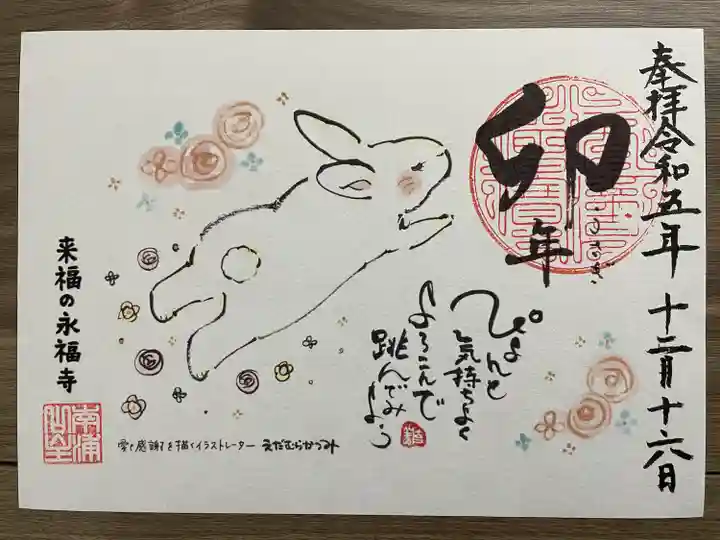 奉拝 令和五年 十二月十六日
卯年
うさぎ
ぴょんと
気持ちよく
よろこんで
跳んでみよう
来福の永福寺
愛と感謝を描くイラストレーター えだむらかつみ